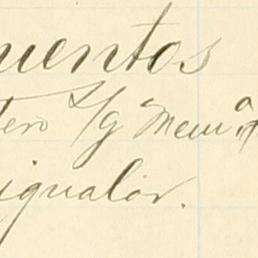 uentos
tero S/g Mem.ª
igualor.